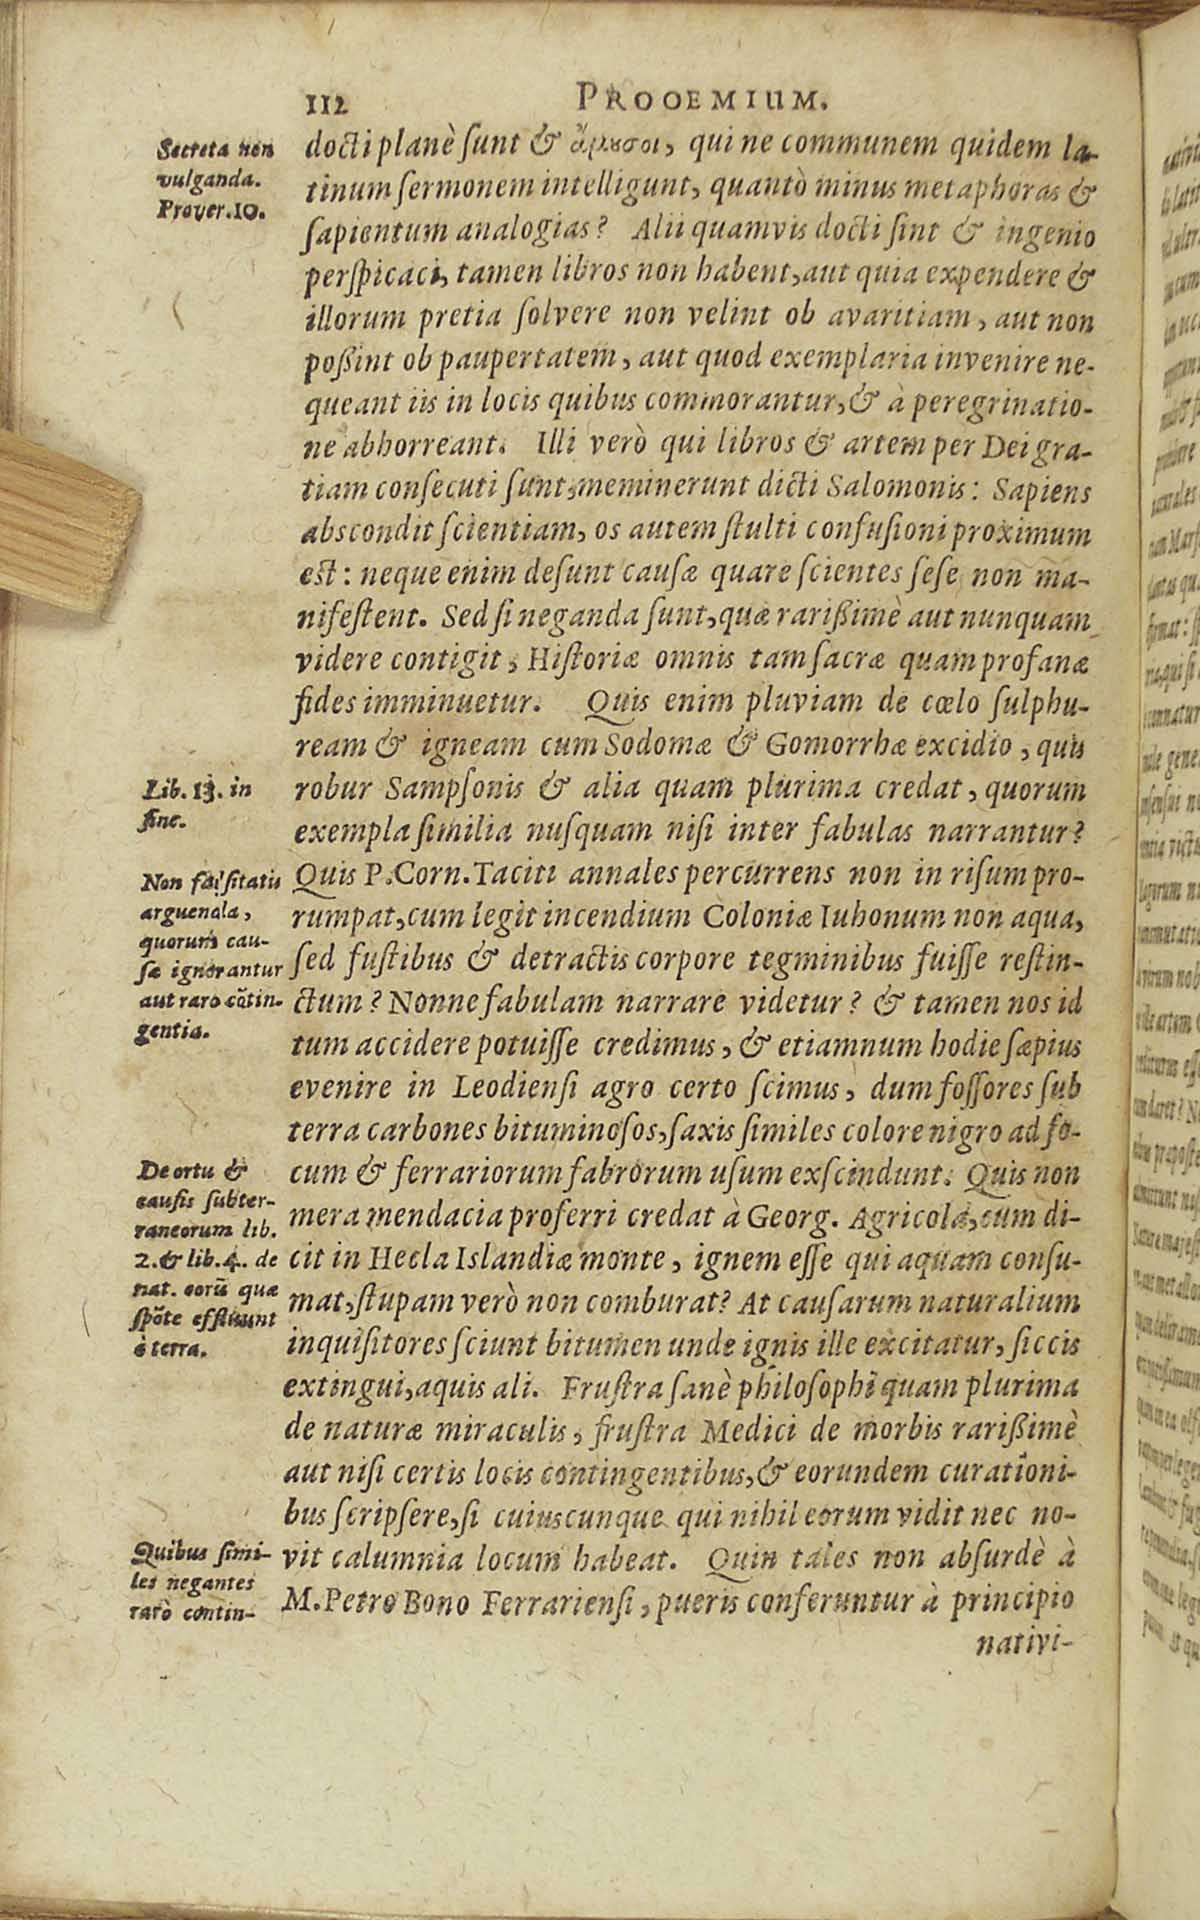 112 PROOEMIUM.
Secreta non
vulganda.
Prover.10.
docti planè sunt & ἄμουσοι, qui ne communem quidem la-
tinum sermonem intelligunt, quantò minus metaphoras &
sapientum analogias? Alii quamvis docti sint & ingenio
perspicaci, tamen libros non habent, aut quia expendere &
illorum pretia solvere non velint ob avaritiam, aut non
poßint ob paupertatem, aut quod exemplaria invenire ne-
queant iis in locis quibus commorantur, & à peregrinatio-
ne abhorreant. Illi verò qui libros & artem per Dei gra-
tiam consecuti sunt, meminerunt dicti Salomonis: Sapiens
abscondit scientiam, os autem stulti confusioni proximum
est: neque enim desunt causæ quare scientes sese non ma-
nifestent. Sed si neganda sunt, quæ rarißimè aut nunquam
videre contigit, Historiæ omnis tam sacræ quam profanæ
fides imminuetur. Quis enim pluviam de cœlo sulphu-
ream & igneam cum Sodomæ & Gomorrhæ excidio, quis
robur Sampsonis & alia quam plurima credat, quorum
exempla similia nusquam nisi inter fabulas narrantur?
Lib. 13. in
fine.
Quis P. Corn. Taciti annales percurrens non in risum pro-
rumpat, cum legit incendium Coloniæ Iuhonum non aqua,
sed fustibus & detractis corpore tegminibus fuisse restin-
ctum? Nonne fabulam narrare videtur? & tamen nos id
tum accidere potuisse credimus, & etiamnum hodie sæpius
evenire in Leodiensi agro certo scimus, dum fossores sub
terra carbones bituminosos, saxis similes colore nigro ad fo-
Non falsitatis
arguenda,
quorum cau-
sæ ignorantur
aut raro cõtin-
gentia.
cum & ferrariorum fabrorum usum exscindunt. Quis non
mera mendacia proferri credat à Georg. Agricola, cum di-
cit in Hecla Islandiæ monte, ignem esse qui aquam consu-
mat, stupam verò non comburat? At causarum naturalium
inquisitores sciunt bitumen unde ignis ille excitatur, siccis
extingui, aquis ali. Frustra sanè philosophi quam plurima
de naturæ miraculis, frustra Medici de morbis rarißimè
aut nisi certis locis contingentibus, & eorundem curationi-
bus scripsere, si cuiuscunque qui nihil eorum vidit nec no-
De ortu &
causis subter-
raneorum lib.
2. & lib. 4. de
nat. eorũ quæ
spõte effluunt
è terra.
vit calumnia locum habeat. Quin tales non absurdè à
M. Petro Bono Ferrariensi, pueris conferuntur à principio
Quibus simi-
les negantes
rarò contin-
nativi-